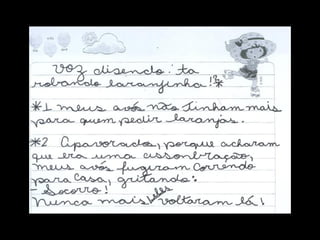 voz disendo: ta
robando laranjinha!?*
*1 meus avós não tinham mais
para quem pedir laranjas.
*2 Apavorados, porque acharam
que era uma assonbração,
meus avós fugiram correndo
para casa, gritando:
- Socorro!
Nunca mais eles voltaram lá!